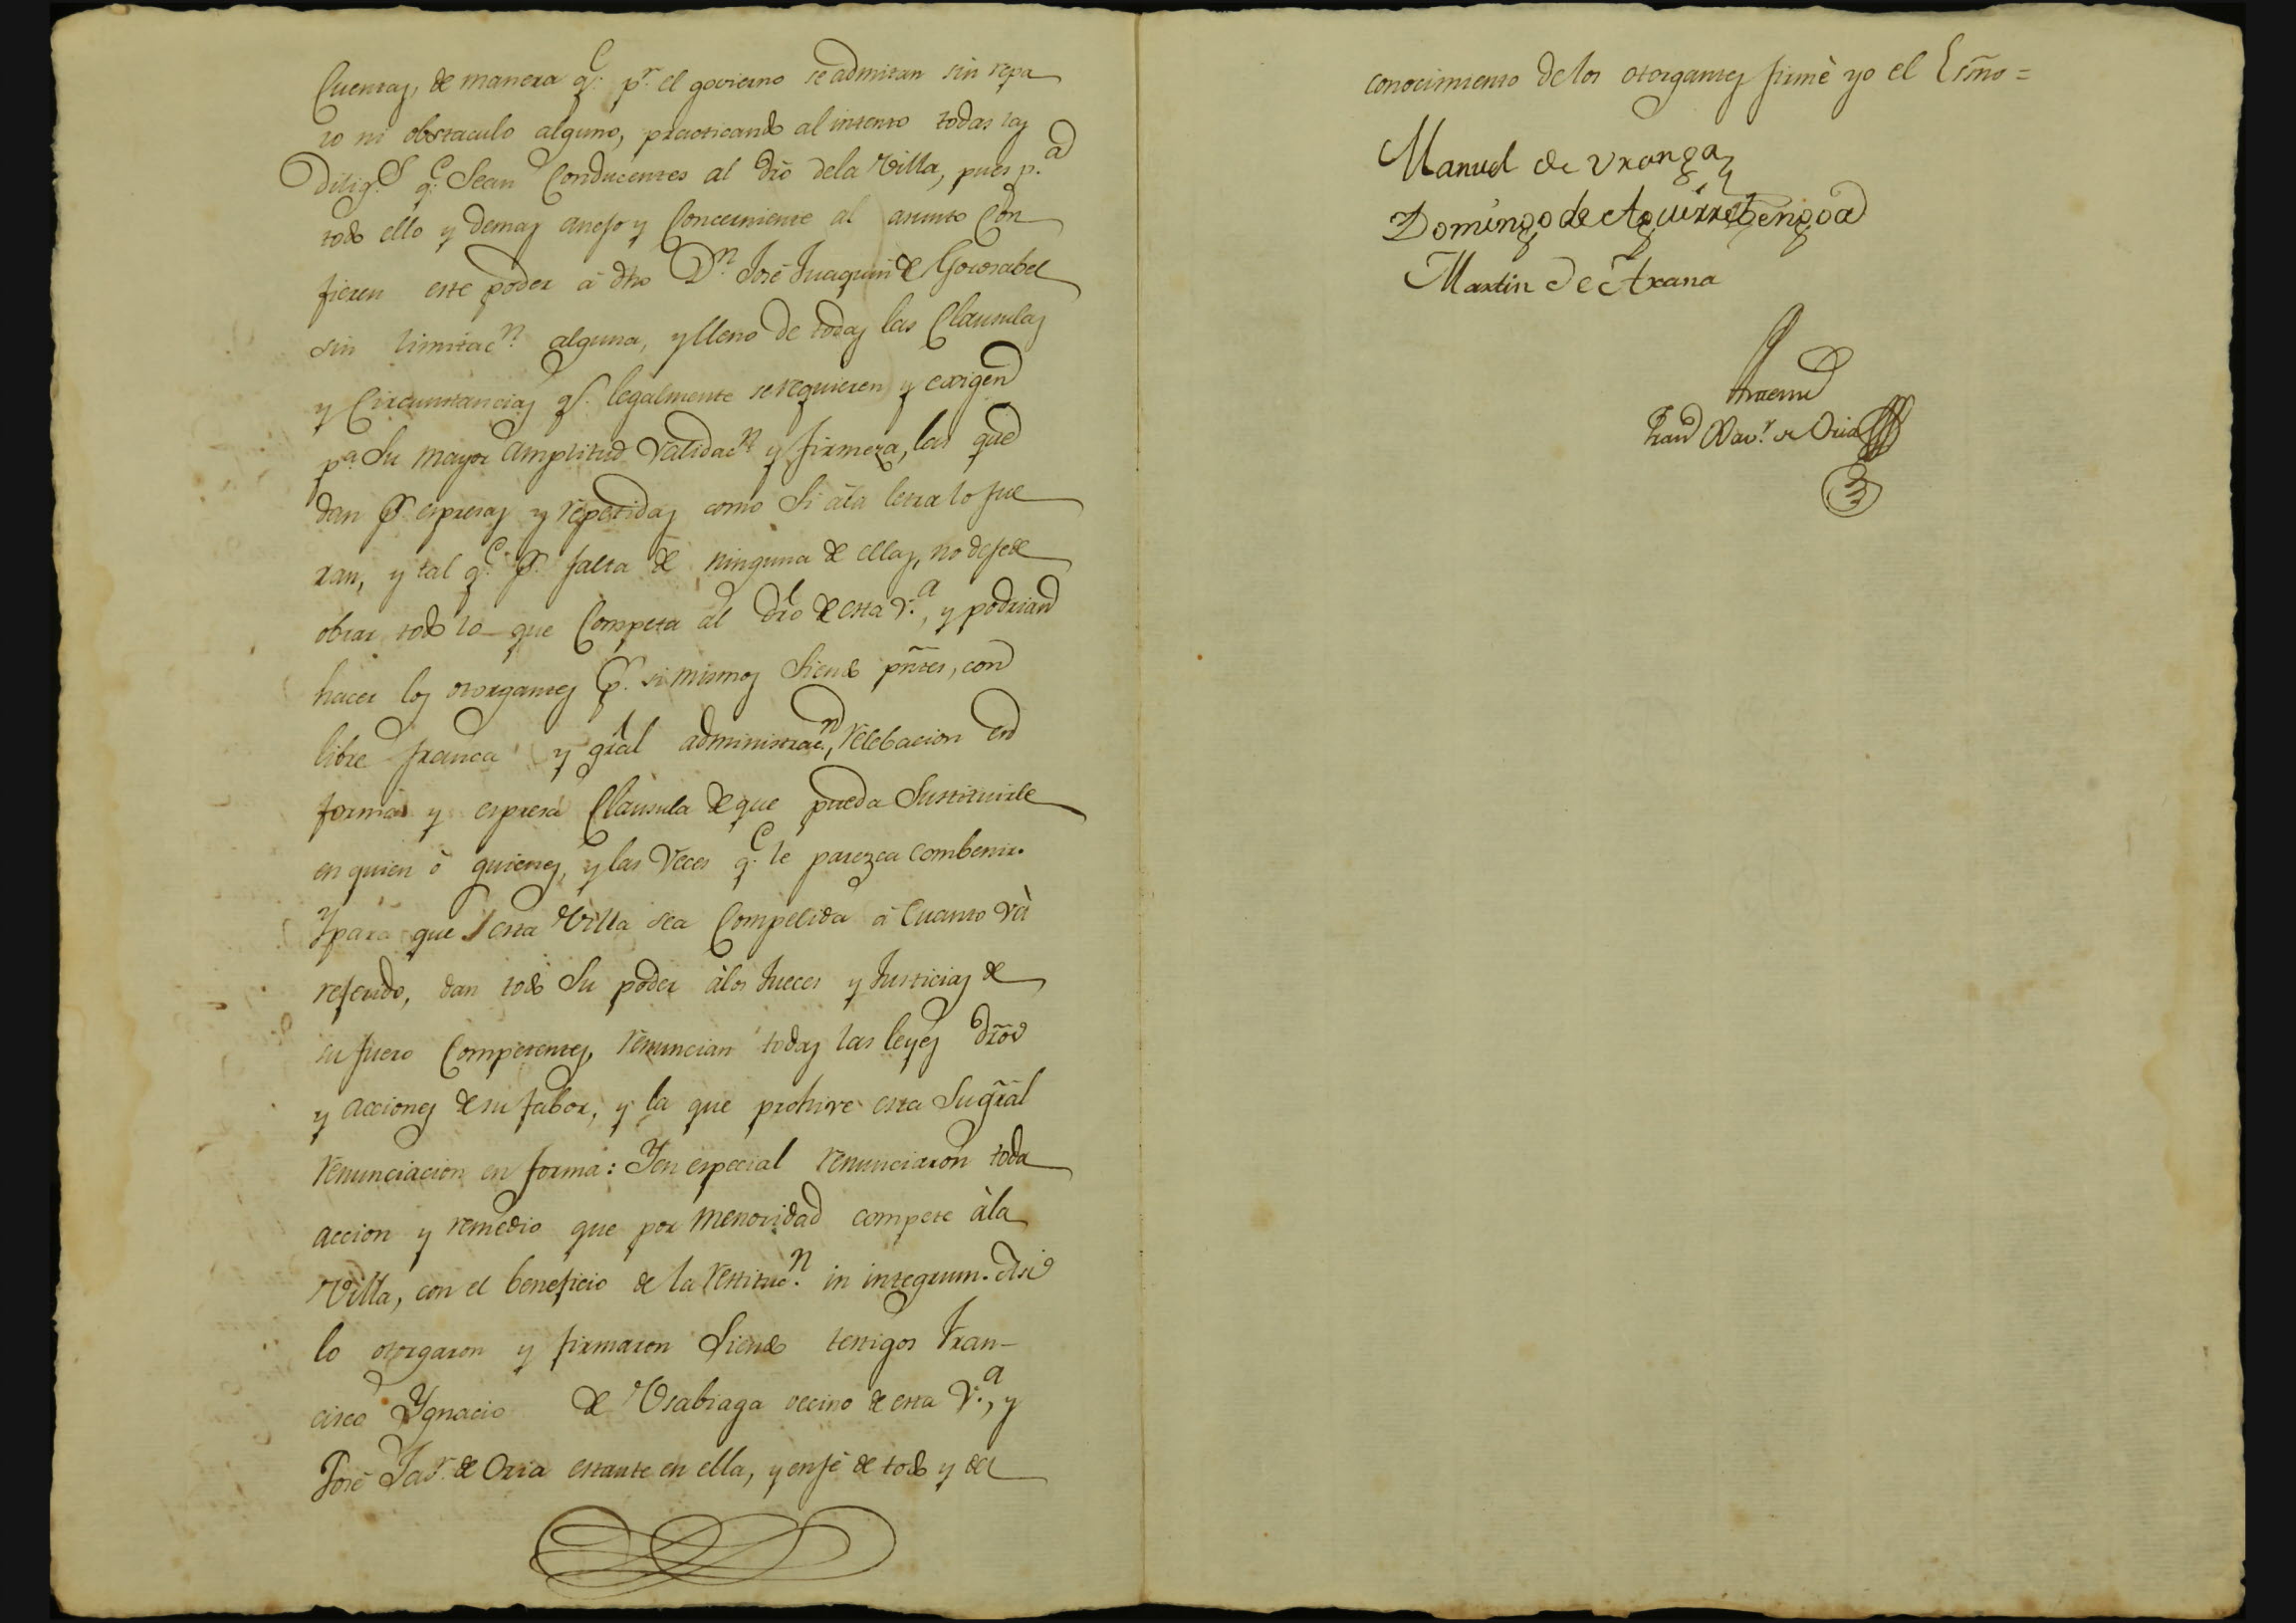 Cuentas, de manera q.e p.r el govierno se admitan sin repa
ro ni obstaculo alguno, practicando al intento todas las
Dilig.s q.e Sean Conducentes al dro dela Villa, pues p.a
todo ello y demas anejo y Concerniente al asunto Con
fieren este poder á dho D.n José Juaquin de Gorosabel
sin limitac.n alguna, y lleno de todas las Clausulas
y Circunstancias q.e legalmente se requieren y exigen
p.a Su mayor amplitud validac.n y firmeza, las que
dan p.r espresas y repetidas como Si á la letra lo fue
ran, y tal q.e p.r falta de ninguna de ellas, no deje de
obrar todo lo que Competa al dro de esta V.a, y podrian
hacer los otorgantes p.r si mismos Siendo pñtes, con
libre franca y gral administrac.n, relebacion en
forma y espresa Clausula de que pueda Sustituirle
en quien ó quienes, y las Veces q.e le parezca combenir.
Y para que esta Villa sea Compelida á Cuanto vá
referido, dan todo Su poder á los Jueces y Justicias de
su fuero Competentes, renuncian todas las leyes dros
y acciones de su fabor, y la que prohive esta Su gral
renunciacion en forma: Y en especial renunciaron toda
accion y remedio que por menoridad compete á la
Villa, con el beneficio de la restituc.n in integrum. Asi
lo otorgaron y firmaron Siendo testigos Fran-
cisco Ygnacio de Usabiaga vecino de esta V.a, y
José Jav.r de Oria estante en ella, y en fé de todo y del
conocimiento de los otorgantes firmé yo el Esño =
Manuel de Uranga
Domingo de Aguirrebengoa
Martin de Arana
Antemi
Fran Xav.r de Oria